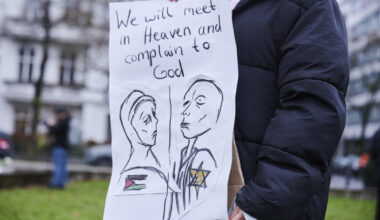 We will meet
in Heaven and
complain to
God